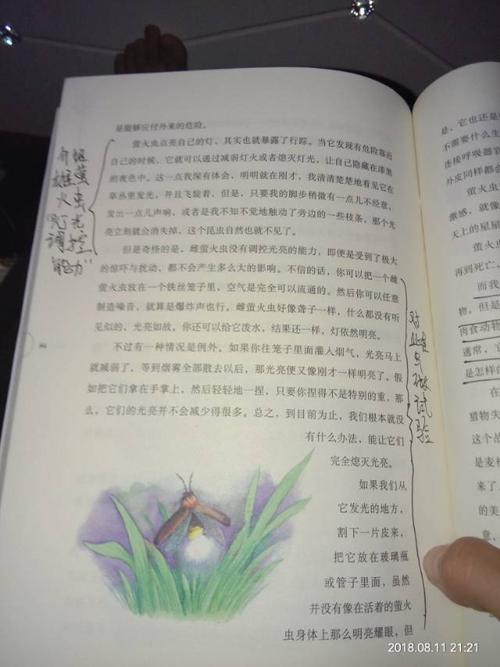 是能够应付外来的危险。
萤火虫点亮自己的灯，其实也就暴露了行踪。当它发现有危险靠近
自己的时候，它就可以通过减弱灯火或者是熄灭灯光，让自己隐藏在漆黑
的夜色中。这一点我深有体会，明明就在刚才，我清清楚楚地看见它在
草丛里发光，并且飞旋着，但是，只要我的脚步稍微有一点儿不经意，
发出一点儿声响，或者是我不知不觉地触动了旁边的一些枝条，那个光
亮立刻就会消失掉，这个昆虫自然也就不见了。
但是奇怪的是，雌萤火虫没有调控光亮的能力，即便是受到了极大
的惊吓与扰动，都不会产生多么大的影响。不信的话，你可以把一个雌
萤火虫放在一个铁丝笼子里，空气是完全可以流通的。然后你可以任意
制造噪音，就算是爆炸声也行。雌萤火虫好像聋子一样，什么都没有听
见似的，光亮如故。你还可以给它泼水，结果还一样，灯依然明亮。
不过有一种情况是例外。如果你往笼子里面灌入烟气，光亮马上
就减弱了，等到烟雾全部散去以后，那光亮便又像刚才一样明亮了。假
如把它们拿在手掌上，然后轻轻地一捏，只要你捏得不是特别的重，那
么，它们的光亮并不会减少得很多。总之，到目前为止，我们根本就没
有什么办法，能让它们
完全熄灭光亮。
如果我们从
它发光的地方，
割下一片皮来，
把它放在玻璃瓶
或管子里面，虽然
并没有像在活着的萤火
虫身体上那么明亮耀眼，但
介绍萤
雄火虫
"光控
调
能力"
对雌虫做试验
是，它也还是
不需要什么生
连接呼吸器官
外皮同样都会
激感，就像
天上的星星
萤火虫
再到死亡，
而我
物，但是
肉食动物
通常，它
是怎样的
在
猎物失
的战
是麦秆
来了
的美
意，
2018.08.11 21:21